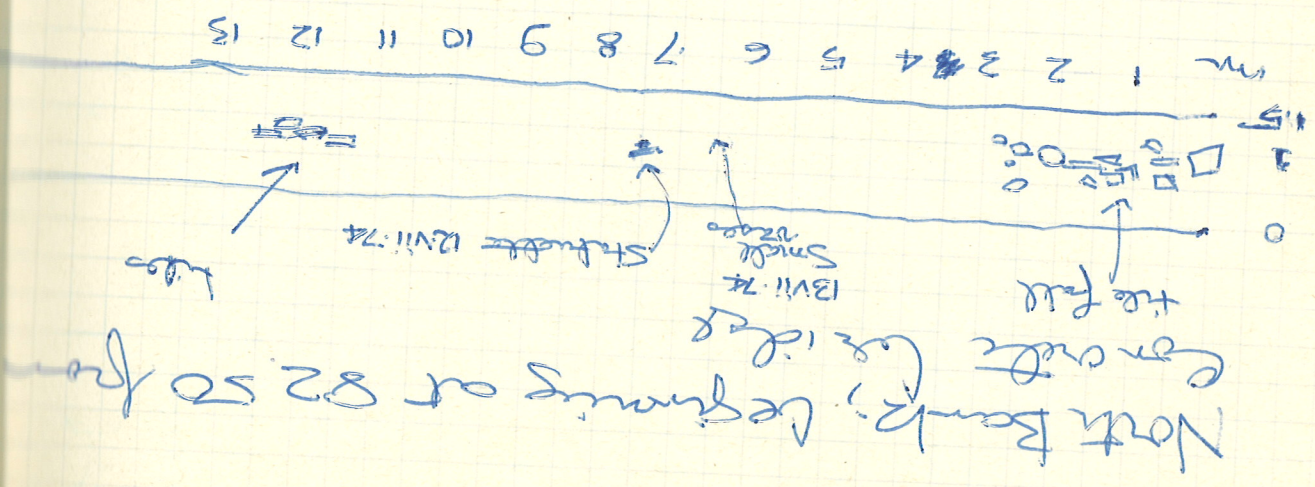 North Bank, beginning at 82 50 from
Concrete bridge
tile fall
13.vii.74
Small
vases
Statuette 12.vii.74
tiles
0
1
1.5
m 1 2 3 4 5 6 7 8 9 10 11 12 13